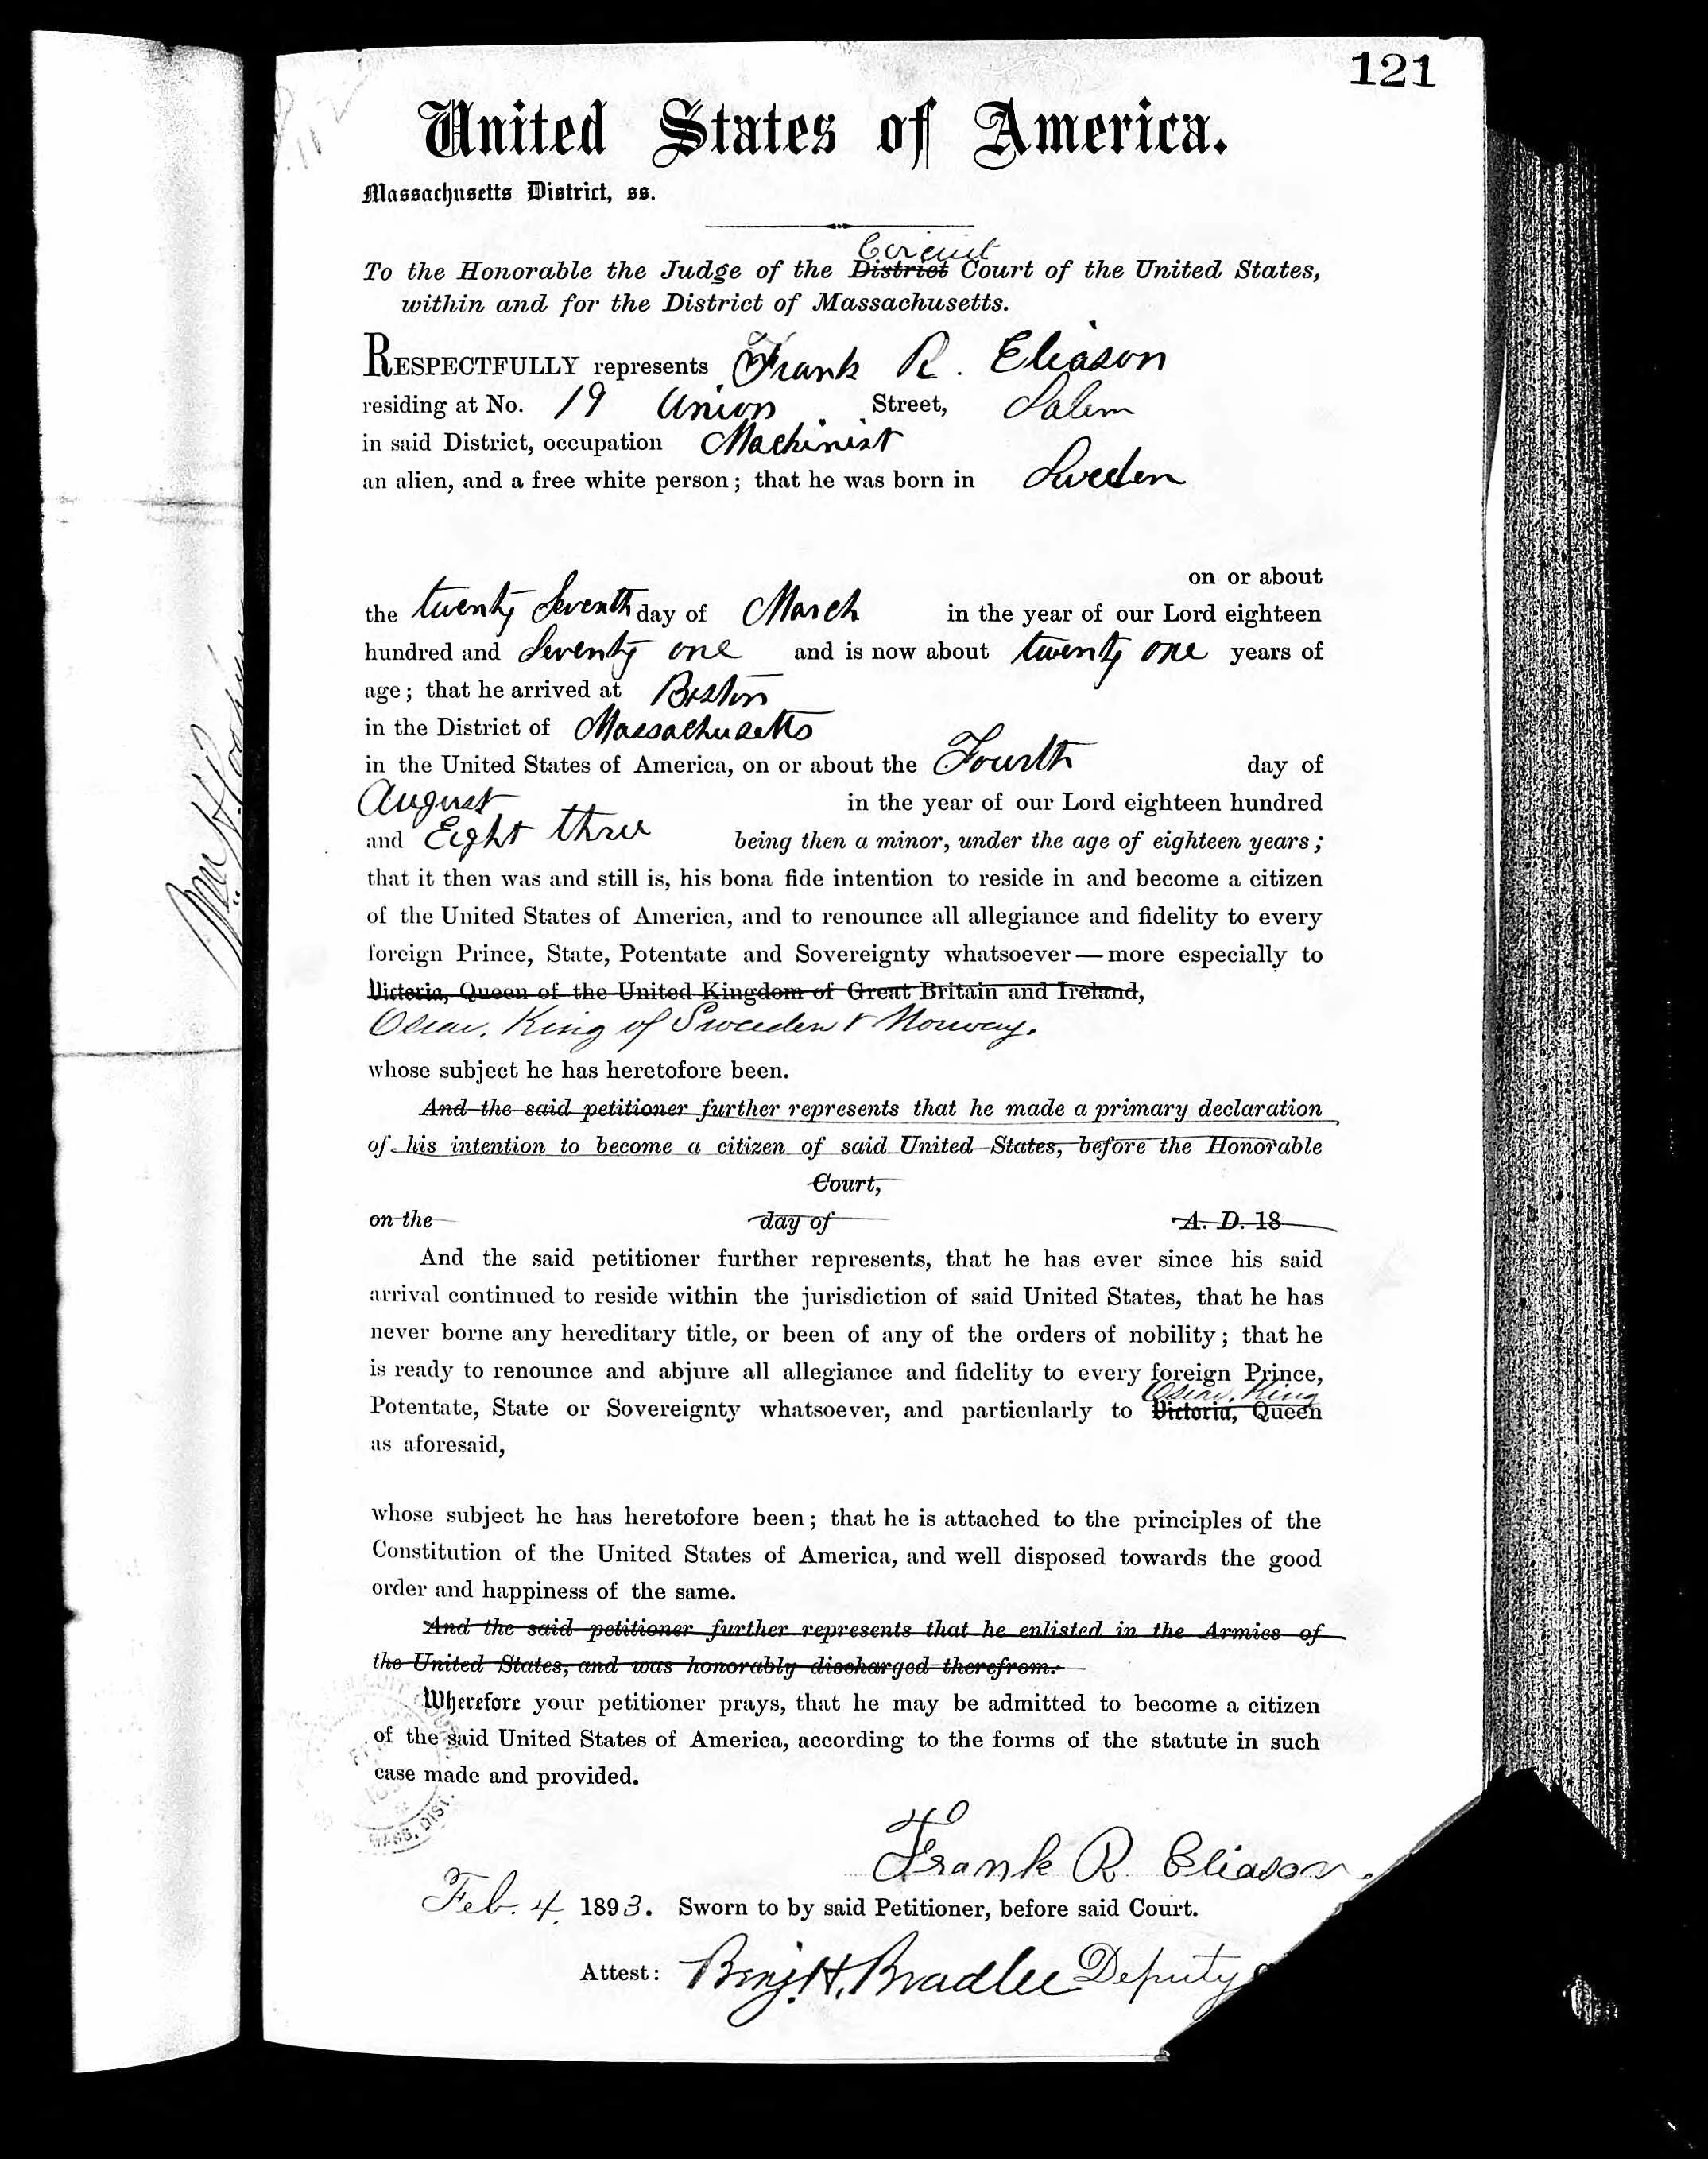 121
United States of America.
Massachusetts District, ss.
Circuit
To the Honorable the Judge of the District Court of the United States,
within and for the District of Massachusetts.
RESPECTFULLY represents Frank R. Eliason
residing at No. 19 Union Street, Salem
in said District, occupation Machinist
an alien, and a free white person; that he was born in Sweden
on or about
the twenty Seventh day of March in the year of our Lord eighteen
hundred and Seventy one and is now about twenty one years of
age; that he arrived at Boston
in the District of Massachusetts
in the United States of America, on or about the Fourth day of
August in the year of our Lord eighteen hundred
and Eight three being then a minor, under the age of eighteen years;
that it then was and still is, his bona fide intention to reside in and become a citizen
of the United States of America, and to renounce all allegiance and fidelity to every
foreign Prince, State, Potentate and Sovereignty whatsoever — more especially to
Victoria, Queen of the United Kingdom of Great Britain and Ireland,
Oscar, King of Sweeden & Norway.
whose subject he has heretofore been.
And the said petitioner further represents that he made a primary declaration
of his intention to become a citizen of said United States, before the Honorable
Court,
on the day of A. D. 18
And the said petitioner further represents, that he has ever since his said
arrival continued to reside within the jurisdiction of said United States, that he has
never borne any hereditary title, or been of any of the orders of nobility; that he
is ready to renounce and abjure all allegiance and fidelity to every foreign Prince,
Oscar, King
Potentate, State or Sovereignty whatsoever, and particularly to Victoria, Queen
as aforesaid,
whose subject he has heretofore been; that he is attached to the principles of the
Constitution of the United States of America, and well disposed towards the good
order and happiness of the same.
And the said petitioner further represents that he enlisted in the Armies of
the United States, and was honorably discharged therefrom.
Wherefore your petitioner prays, that he may be admitted to become a citizen
of the said United States of America, according to the forms of the statute in such
case made and provided.
MASS. DIST.
Frank R Eliason
Feb. 4, 1893. Sworn to by said Petitioner, before said Court.
Attest: Benj. H. Bradlee Deputy